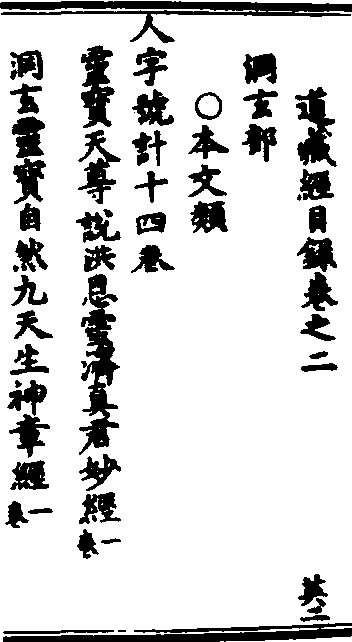 道藏經目録卷之二
英二
洞玄部
○本文類
人字號計十四卷
靈寶天尊說洪恩靈濟真君妙經一卷
洞玄靈寶自然九天生神章經一卷